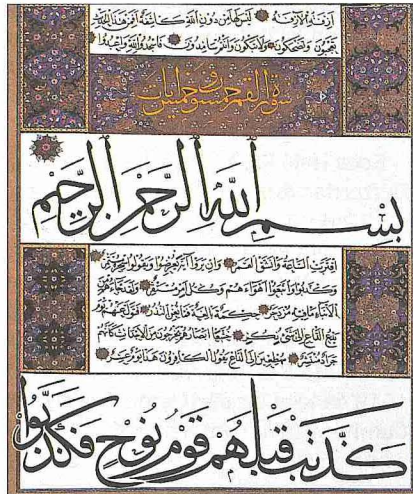 أَزِفَتِ الْآزِفَةُ لَيْسَ لَهَا مِنْ دُونِ اللَّهِ كَاشِفَةٌ أَفَمِنْ هَذَا الْحَدِيثِ
تَعْجَبُونَ وَتَضْحَكُونَ وَلَا تَبْكُونَ وَأَنْتُمْ سَامِدُونَ فَاسْجُدُوا لِلَّهِ وَاعْبُدُوا
سورة القمر خمس وخمسون آيات
بِسْمِ اللَّهِ الرَّحْمَنِ الرَّحِيمِ
اقْتَرَبَتِ السَّاعَةُ وَانْشَقَّ الْقَمَرُ وَإِنْ يَرَوْا آيَةً يُعْرِضُوا وَيَقُولُوا سِحْرٌ مُسْتَمِرٌّ
وَكَذَّبُوا وَاتَّبَعُوا أَهْوَاءَهُمْ وَكُلُّ أَمْرٍ مُسْتَقِرٌّ وَلَقَدْ جَاءَهُمْ مِنَ
الْأَنْبَاءِ مَا فِيهِ مُزْدَجَرٌ حِكْمَةٌ بَالِغَةٌ فَمَا تُغْنِ النُّذُرُ فَتَوَلَّ عَنْهُمْ يَوْمَ
يَدْعُ الدَّاعِ إِلَى شَيْءٍ نُكُرٍ خُشَّعًا أَبْصَارُهُمْ يَخْرُجُونَ مِنَ الْأَجْدَاثِ كَأَنَّهُمْ
جَرَادٌ مُنْتَشِرٌ مُهْطِعِينَ إِلَى الدَّاعِ يَقُولُ الْكَافِرُونَ هَذَا يَوْمٌ عَسِرٌ
كَذَّبَتْ قَبْلَهُمْ قَوْمُ نُوحٍ فَكَذَّبُوا